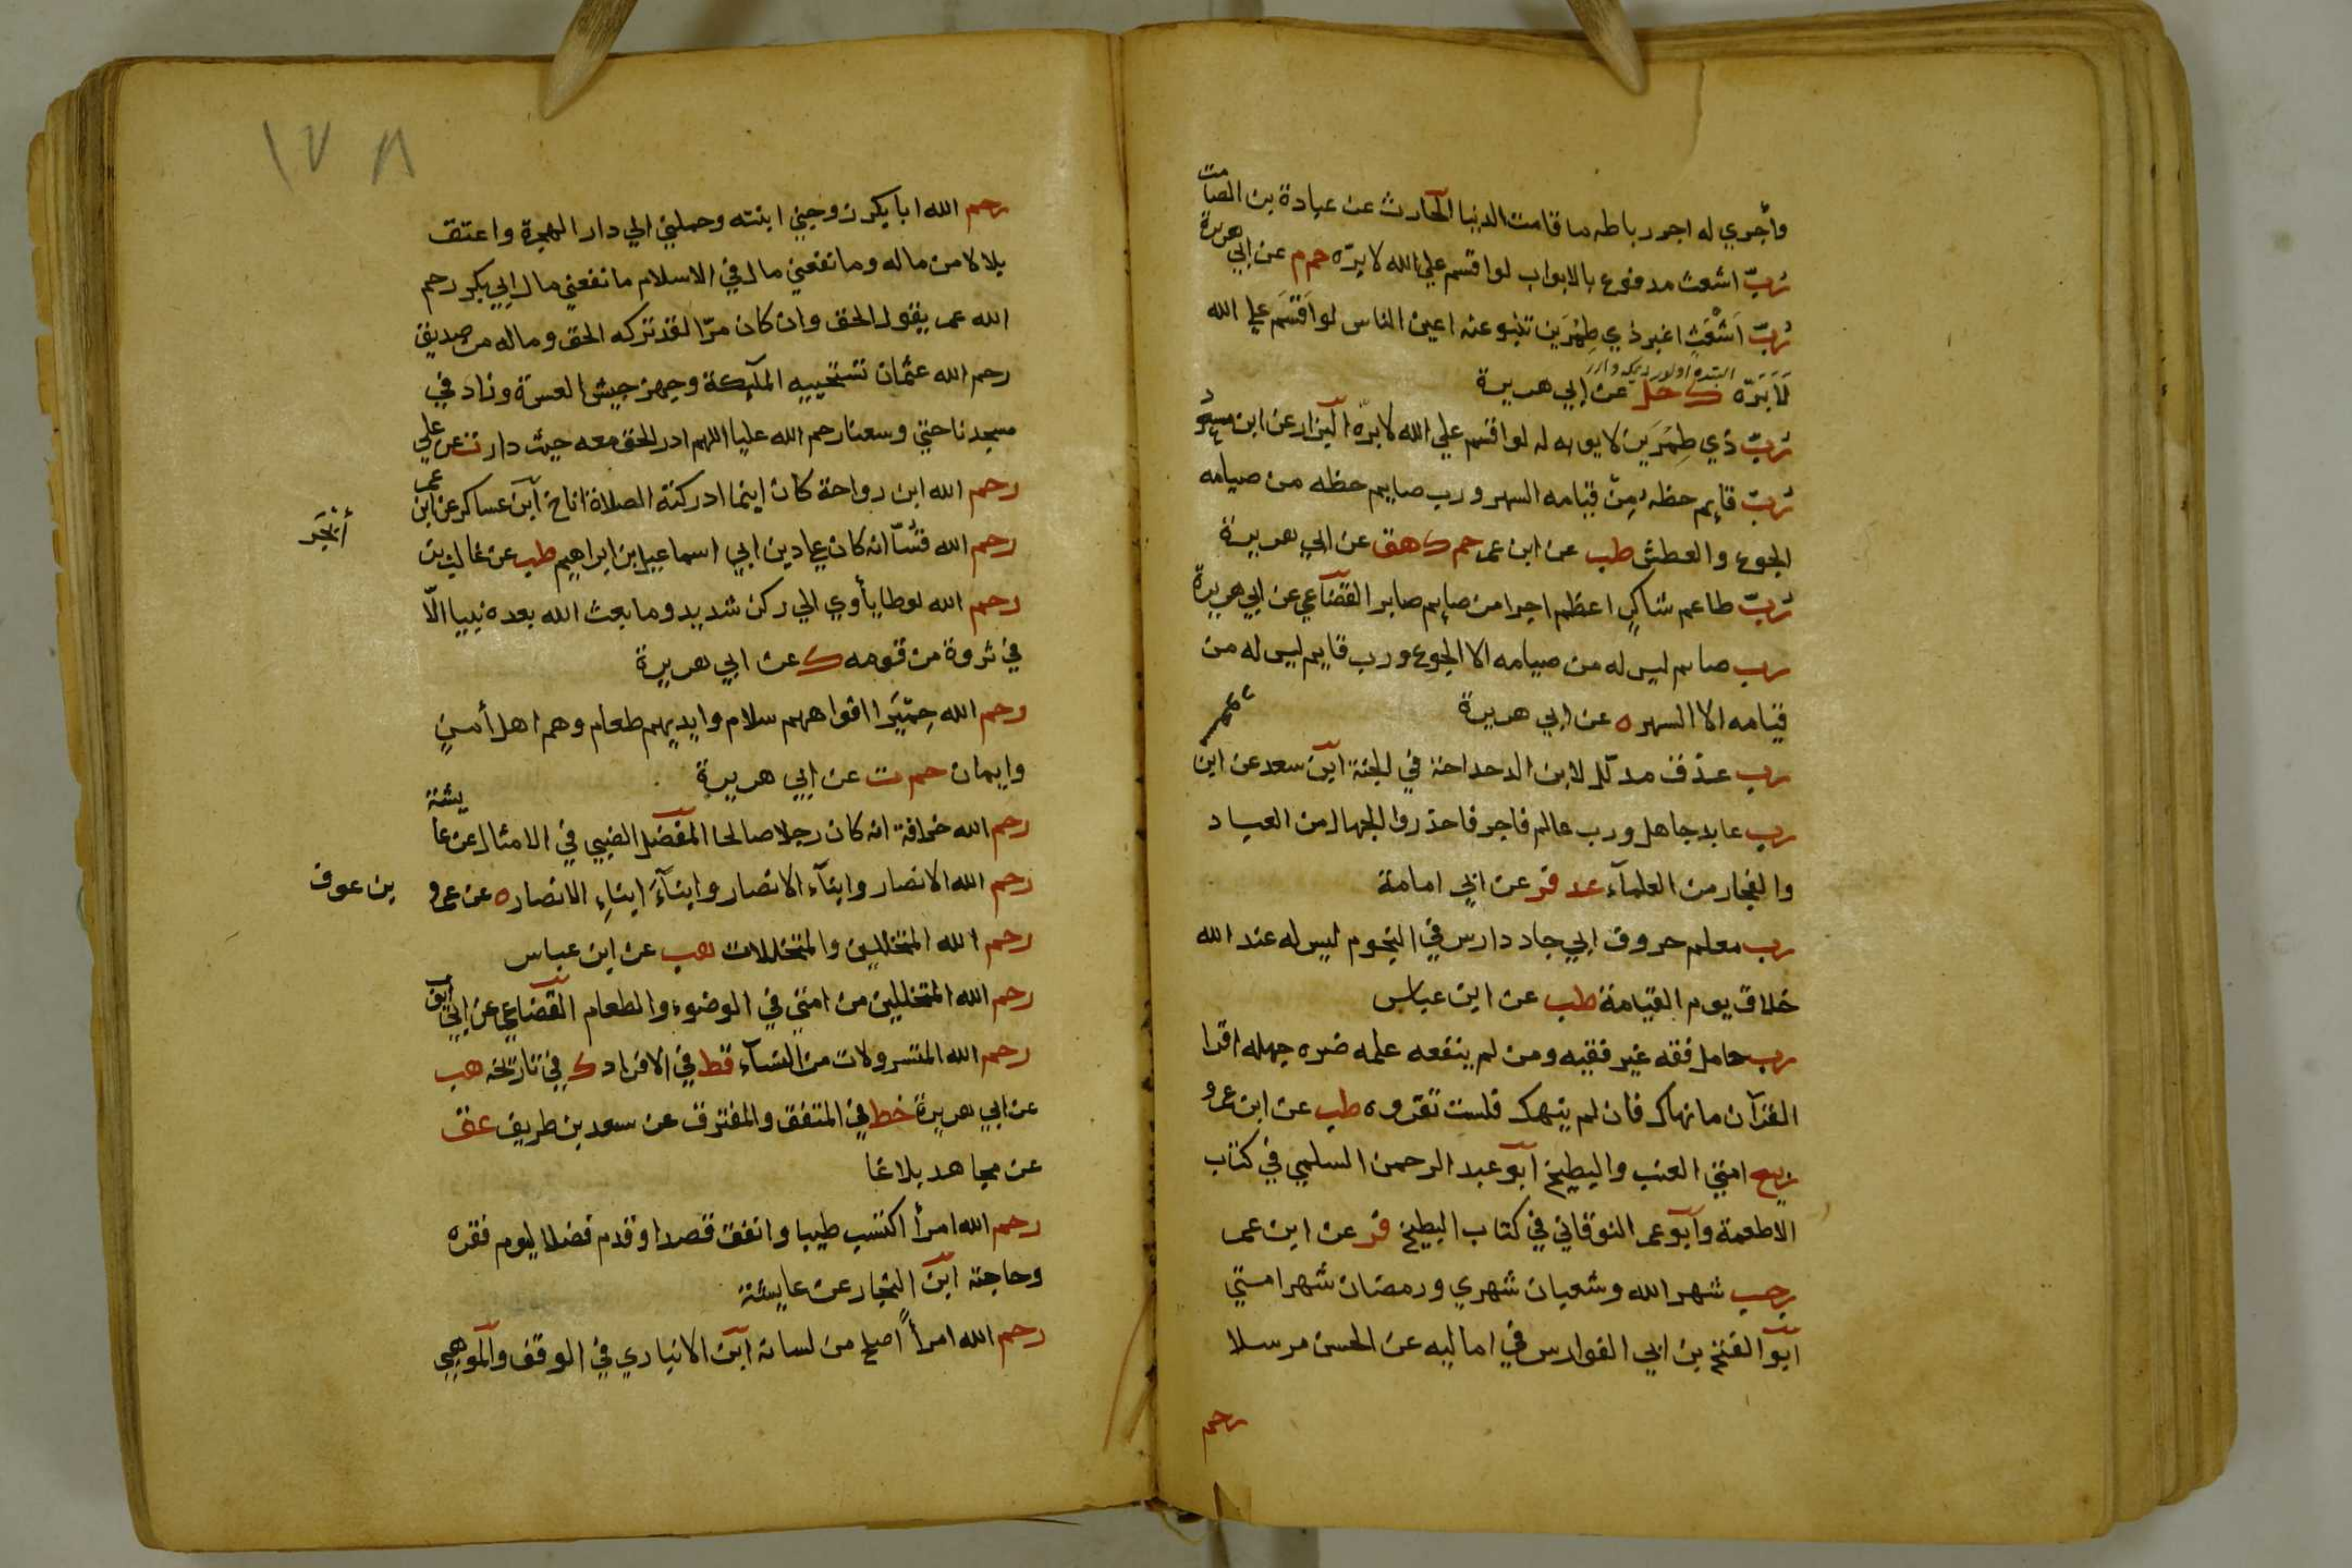 وأجري له اجر رباطه ما قامت الدنيا الحارث عن عبادة بن الصامت
رب اشعث مدفوع بالابواب لو اقسم علي الله لابره حم م عن ابي هريرة
رُبّ اَشْعَثٍ اغبر ذي طِمْرَين تنبو عنه اعين الناس لو اَقْسَم علي الله
لَاَبَرّه ك حل عن ابي هريرة
رُبّ ذي طِمْرَين لا يوبه له لو اقسم علي الله لابره البزار عن ابن مسعود
رُبّ قايم حظه مِن قيامه السهر ورب صايم حظه من صيامه
الجوع والعطش طب عن ابن عمر حم ك هق عن ابي هريرة
رُبّ طاعم شاكرٍ اعظم اجرا من صايم صابر القضاعي عن ابي هريرة
رب صايم ليس له من صيامه الا الجوع ورب قايم ليس له من
قيامه الا السهر ه عن ابي هريرة
رب عذق مدلّل لابن الدحداحة في الجنة ابن سعد عن ابن
رب عابد جاهل ورب عالم فاجر فاحذروا الجهال من العباد
والفجار من العلمآء عد فر عن ابي امامة
رب معلم حروف ابي جاد دارس في النجوم ليس له عند الله
خلاق يوم القيامة طب عن ابن عباس
رب حامل فقه غير فقيه ومن لم ينفعه علمه ضره جهله اقرا
القرآن ما نهاك فان لم ينهك فلست تقروه طب عن ابن عمرو
ربيع امتي العنب والبطيخ ابو عبد الرحمن السلمي في كتاب
الاطعمة وابو عمر النوقاني في كتاب البطيخ فر عن ابن عمر
رجب شهر الله وشعبان شهري ورمضان شهر امتي
ابو الفتح بن ابي الفوارس في اماليه عن الحسن مرسلا
رحم
١٧٨
رحم الله ابا بكر زوجني ابنته وحملني الي دار الهجرة واعتق
بلالا من ماله وما نفعني مال في الاسلام ما نفعني مال ابي بكر رحم
الله عمر يقول الحق وان كان مرّا لقد تركه الحق وماله من صديق
رحم الله عثمان تستحييه الملآئكة وجهز جيش العسرة وزاد في
مسجدنا حتي وسعنا رحم الله عليا اللهم ادر الحق معه حيث دار ت عن علي
رحم الله ابن رواحة كان اينما ادركته الصلاة اناخ ابن عساكر عن ابن عمر
رحم الله قُسّا انه كان علي دين ابي اسماعيل بن ابراهيم طب عن غالب بن أبْجَر
رحم الله لوطا يأوي الي ركن شديد وما بعث الله بعده نبيا الّا
في ثروة من قومه ك عن ابي هريرة
رحم الله حِمْيَرا افواههم سلام وايديهم طعام وهم اهل أمنٍ
وايمان حم ت عن ابي هريرة
رحم الله خرافة انه كان رجلا صالحا المفضل الضبي في الامثال عن عايشة
رحم الله الانصار وابنآء الانصار وابنآءَ ابناءِ الانصار ه عن عمرو بن عوف
رحم الله المتخللين والمتخللات هب عن ابن عباس
رحم الله المتخللين من امتي في الوضوء والطعام القضاعي عن ابي ايوب
رحم الله المتسرولات من النسآء قط في الافراد ك في تاريخه هب
عن ابي هريرة خط في المتفق والمفترق عن سعد بن طريف عق
عن مجاهد بلاغا
رحم الله امرأ اكتسب طيبا وانفق قصدا وقدم فضلا ليوم فقره
وحاجته ابن النجار عن عايشة
رحم الله امرأً اصلح من لسانه ابن الانباري في الوقف والموهبي